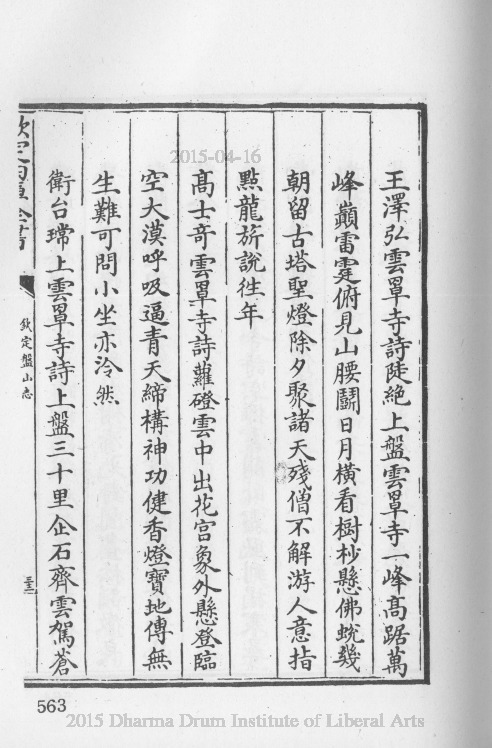 王澤弘雲罩寺詩陡絶上盤雲罩寺一峰髙踞萬
峰巔雷霆俯見山腰鬭日月橫看樹杪懸佛蛻幾
朝留古塔聖燈除夕聚諸天殘僧不解游人意指
㸃龍斾說徃年
髙士奇雲罩寺詩蘿磴雲中出花宫象外懸登臨
空大漠呼吸逼青天締構神功健香燈寶地傳無
生難可問小坐亦泠然
衛台瑺上雲罩寺詩上盤三十里企石齊雲駕蒼
欽定四庫全書
欽定盤山志
三十三
563
2015-04-16
2015 Dharma Drum Institute of Liberal Arts